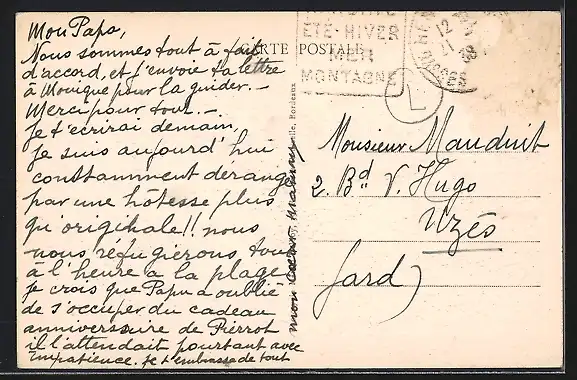 Mon Papa,
Nous sommes tout à fait
d'accord, et j'envoie ta lettre
à Monique pour la guider. -
Merci pour tout. -
Je t'écrirai demain,
je suis aujourd'hui
constamment derangé
par une hôtesse plus
qu'originale!! nous
nous réfugierons tout
à l'heure a la plage
je crois que Papu a oublié
de s'occuper du cadeau
anniversaire de Pierrot
il l'attendait pourtant avec
impatience. je t'embrasse de tout
mon cœur,
CARTE POSTALE
ÉTÉ-HIVER
MER
MONTAGNE
12
L
Bordeaux
Monsieur Mauduit
2. Bd V. Hugo
Uzés
Gard)